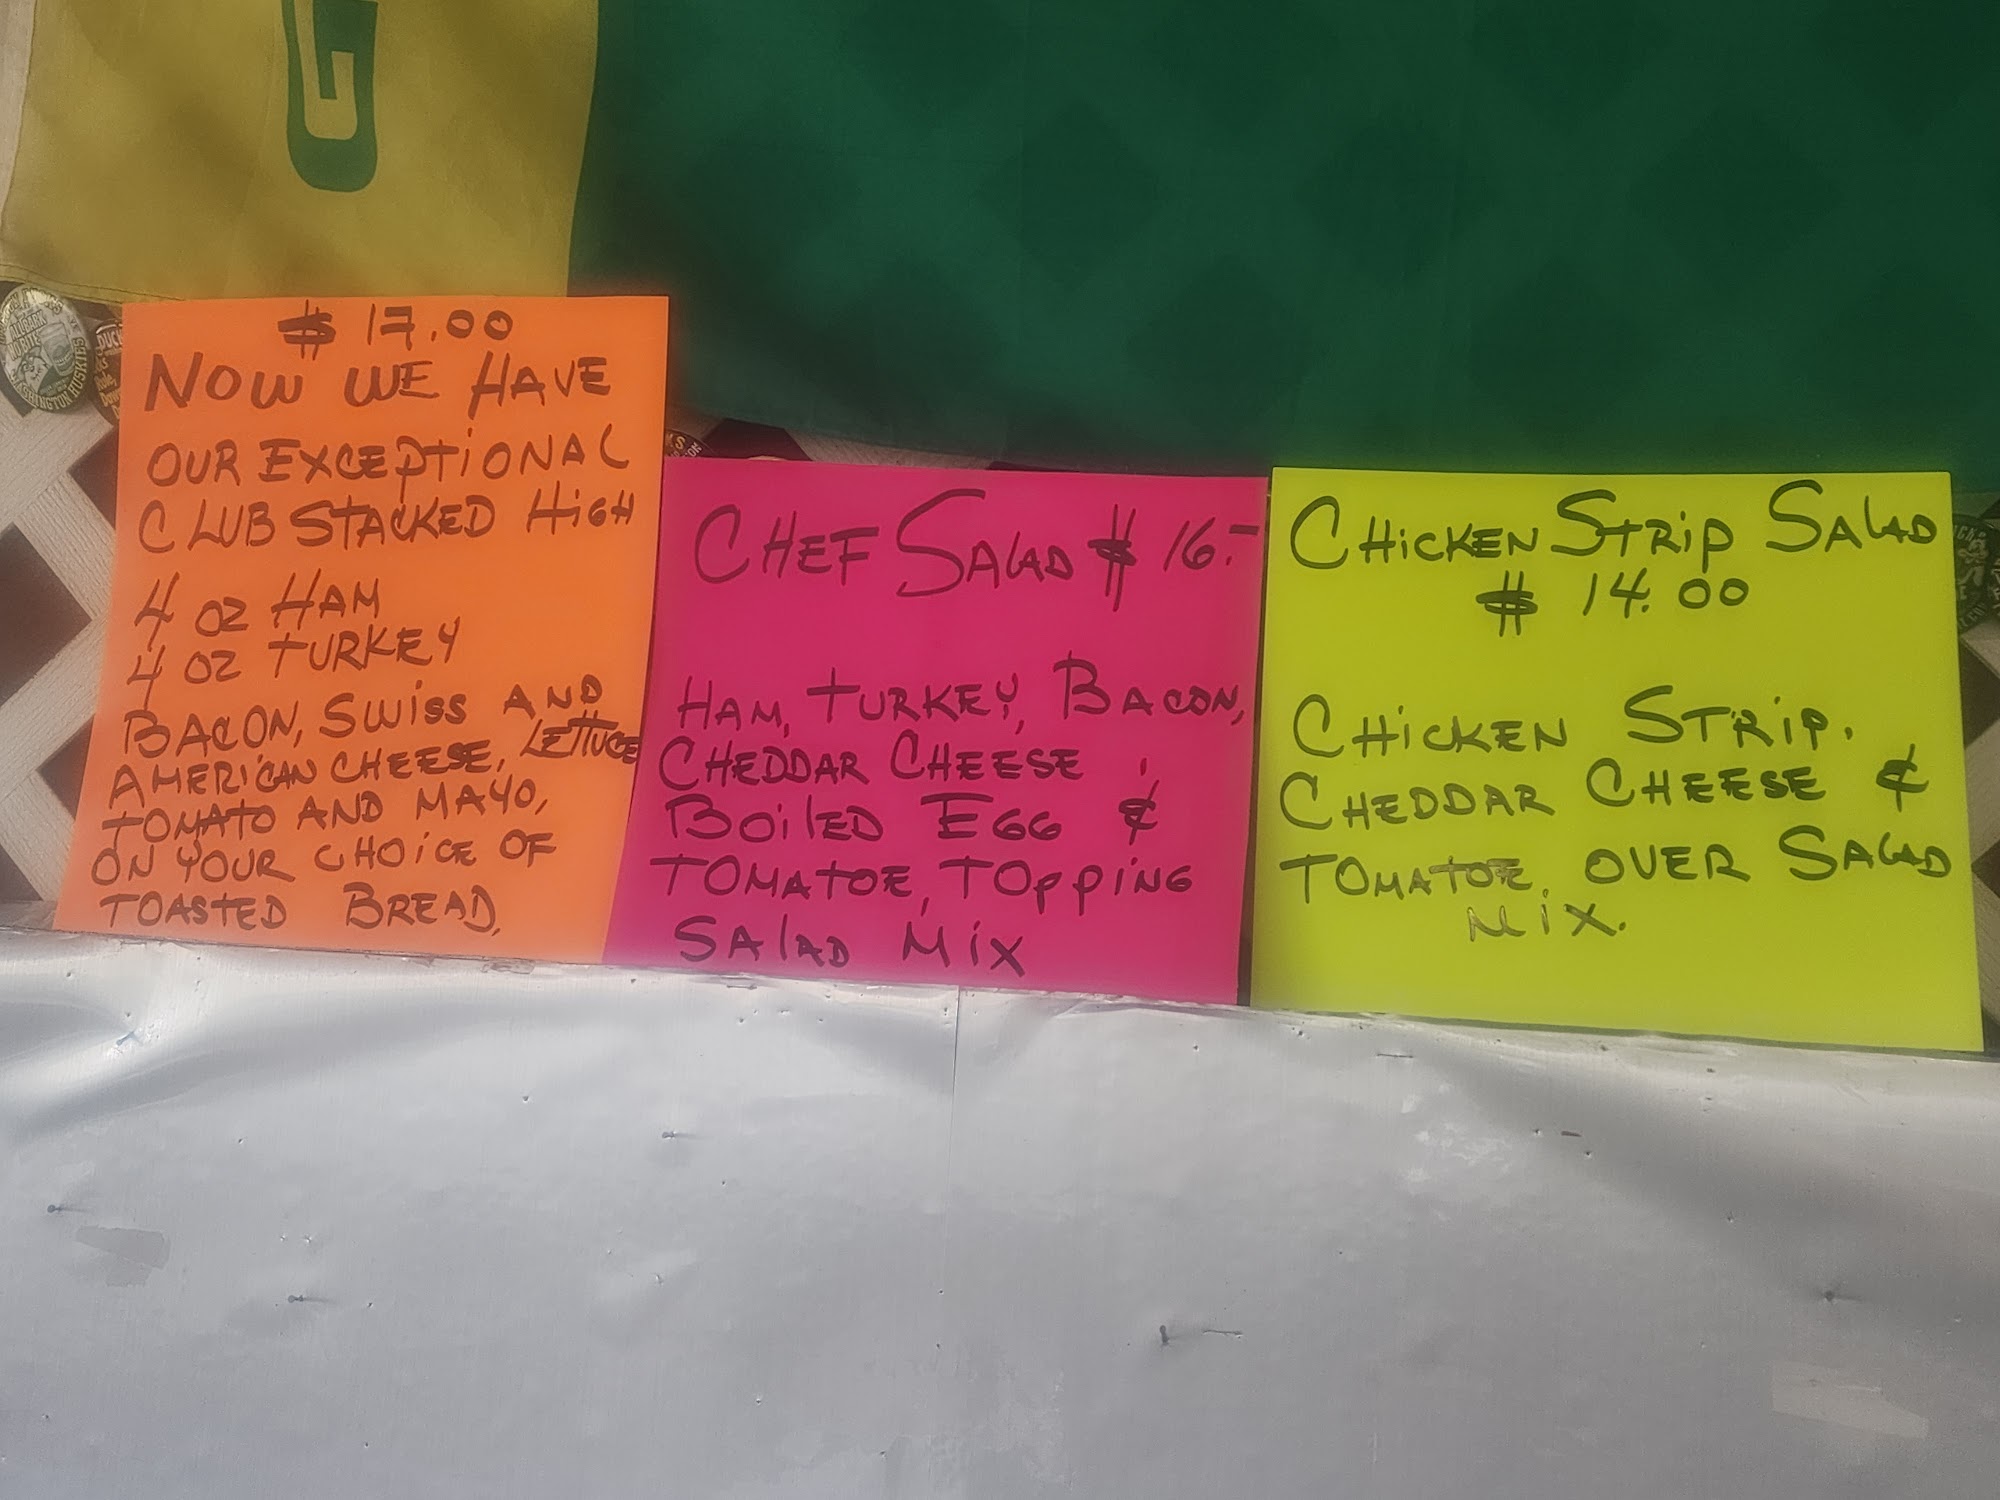 G
WASHINGTON HUSKIES
$ 17.00
NOW WE HAVE
OUR EXCEPTIONAL
CLUB STACKED HIGH
4 OZ HAM
4 OZ TURKEY
BACON, SWISS AND
AMERICAN CHEESE, LETTUCE
TOMATO AND MAYO,
ON YOUR CHOICE OF
TOASTED BREAD.
CHEF SALAD $ 16.-
HAM, TURKEY, BACON,
CHEDDAR CHEESE,
BOILED EGG &
TOMATOE, TOPPING
SALAD MIX
CHICKEN STRIP SALAD
$ 14.00
CHICKEN STRIP.
CHEDDAR CHEESE &
TOMATOE. OVER SALAD
MIX.